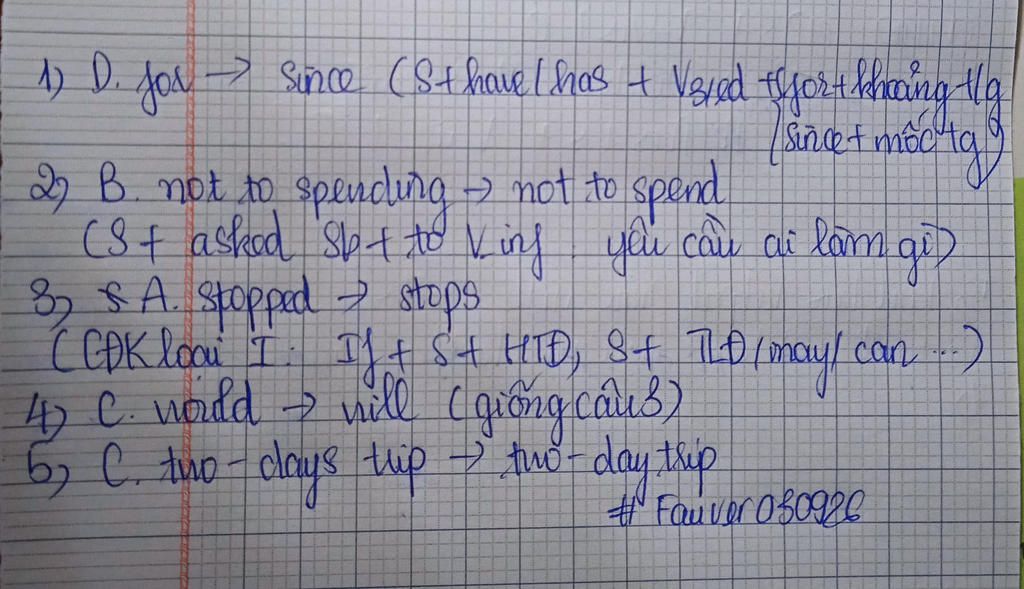 1) D. for → since (S + have / has + V3/ed + { for + khoảng t/g
{ since + mốc tg )
2) B. not to spending → not to spend
(S + asked Sb + to V inf yêu cầu ai làm gì)
3) A. stopped → stops
(CĐK loại I: If + S + HTĐ, S + TLĐ / may / can ...)
4) C. would → will (giống câu 3)
5) C. two-days trip → two-day trip
# Fauver030926